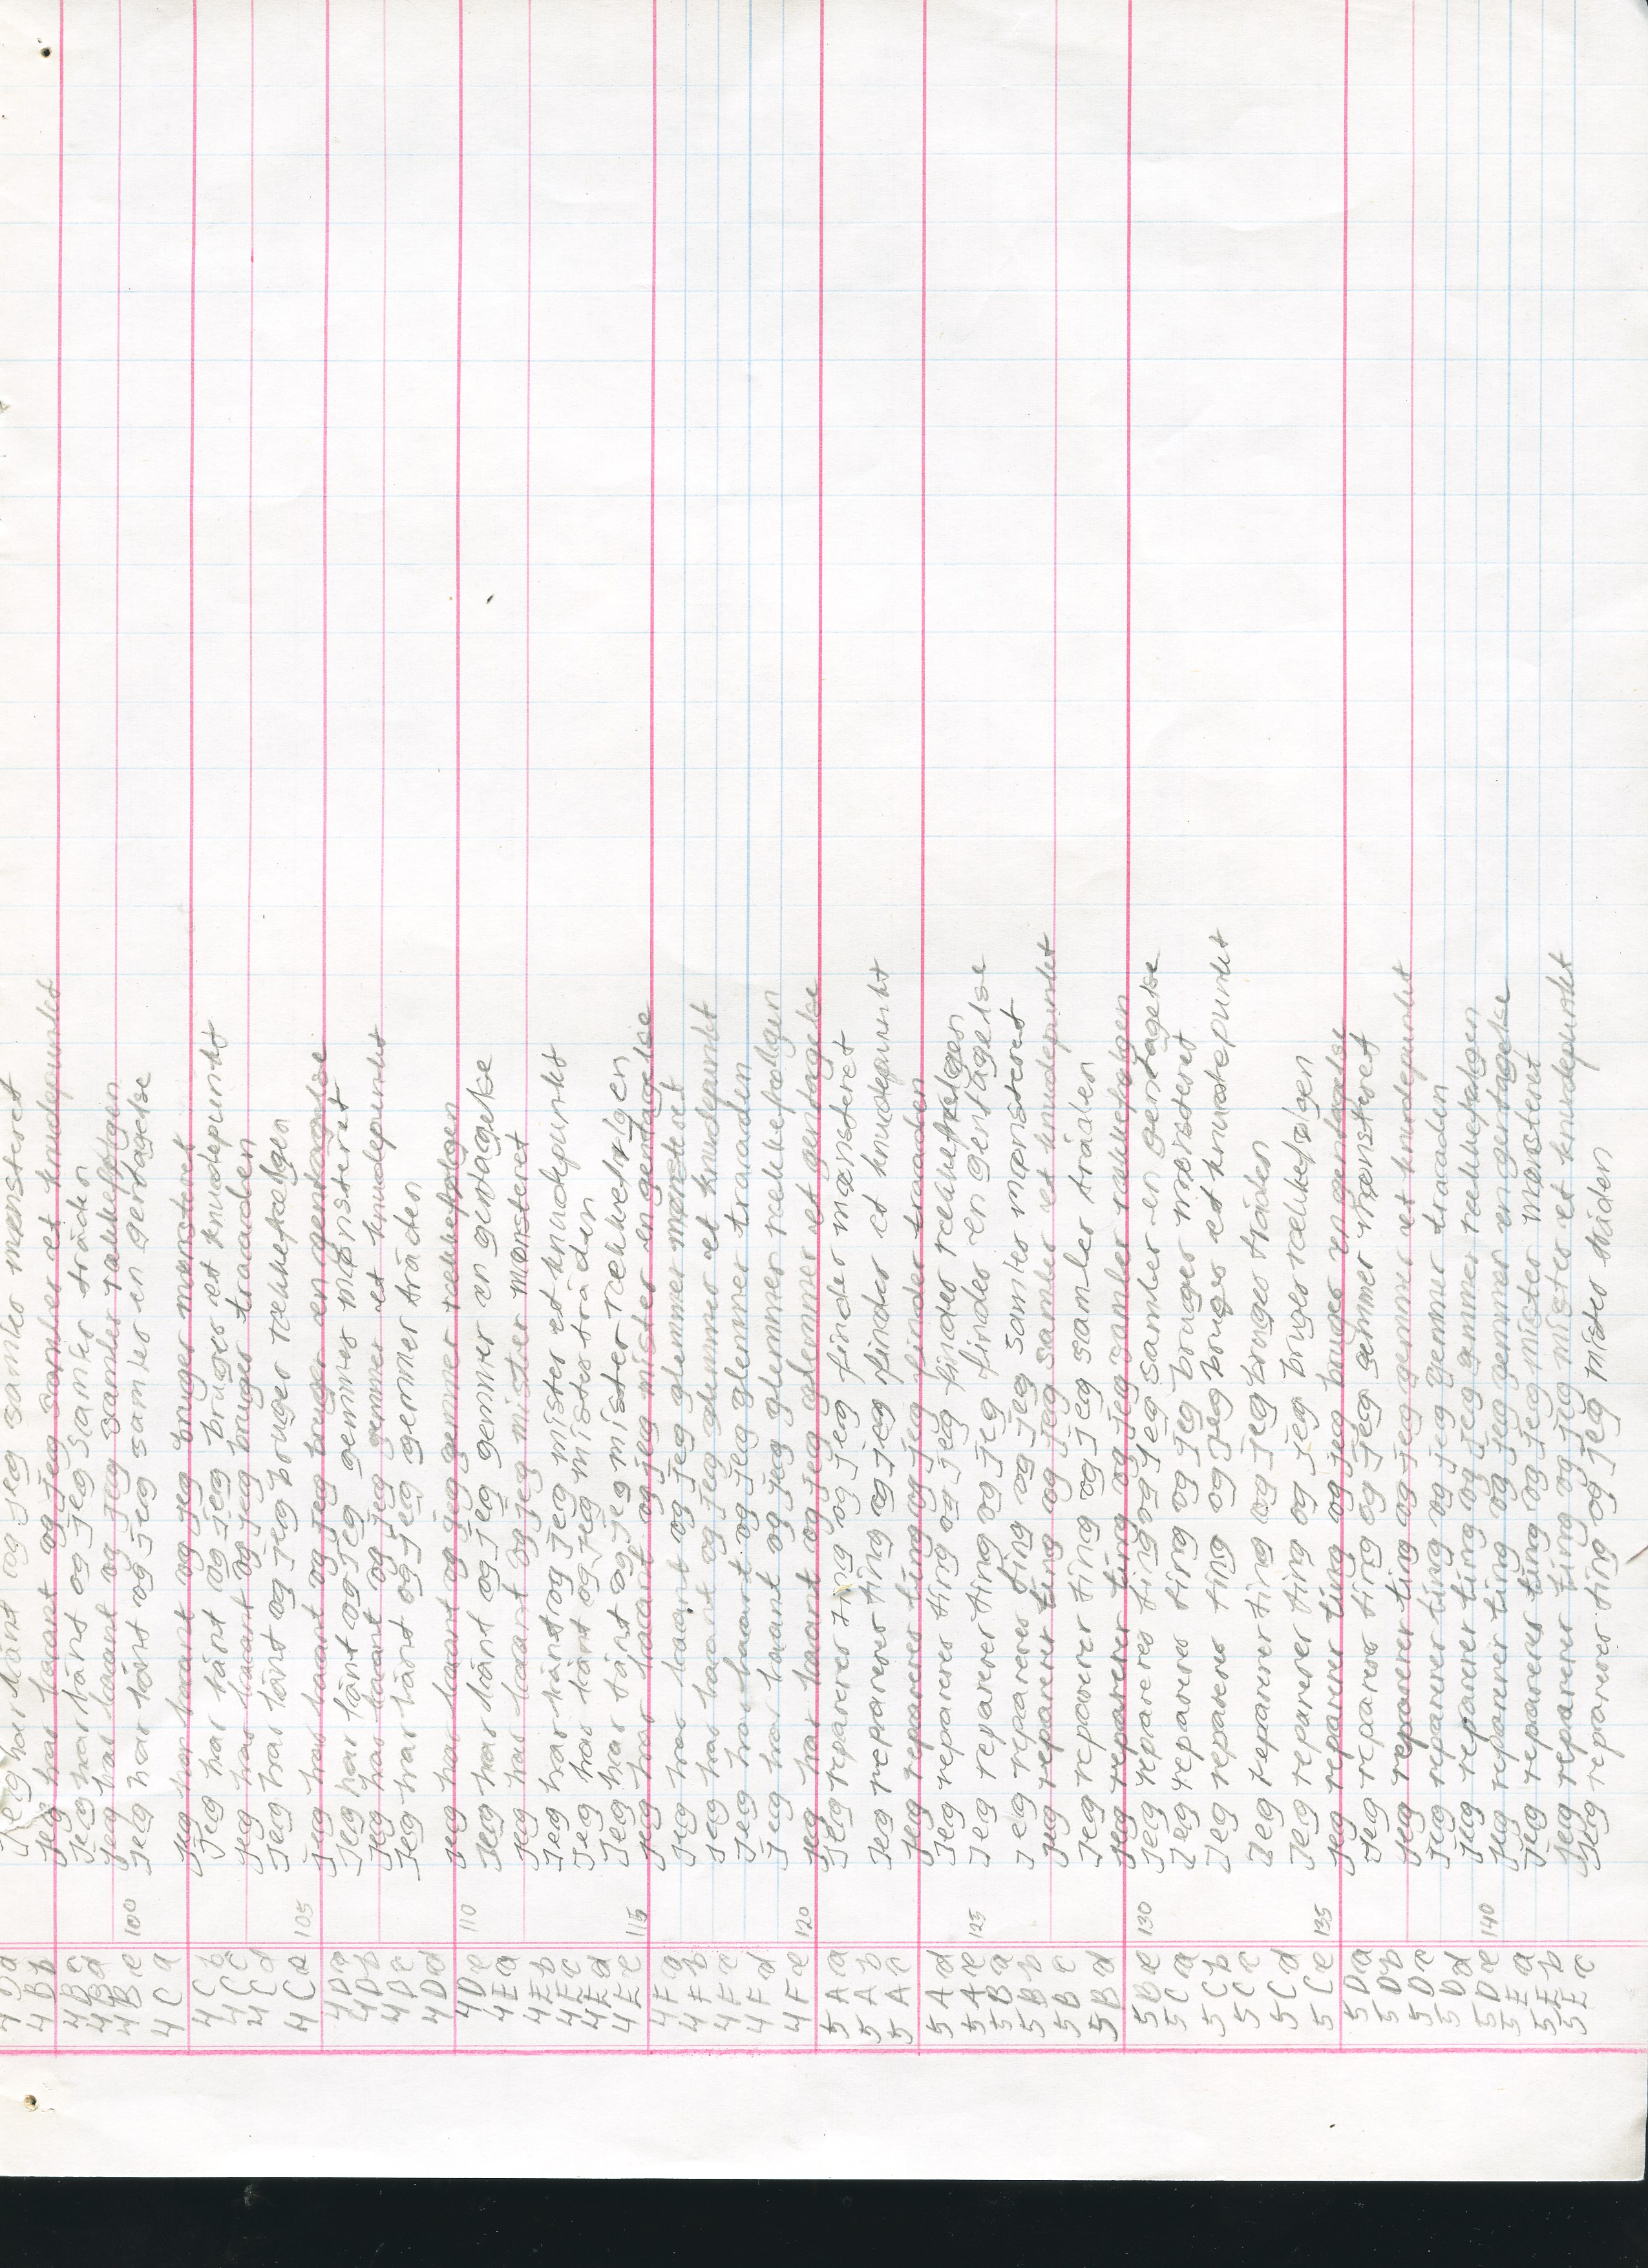 4 B a Jeg har lånt og jeg samler mønsteret
4 B b jeg har laant og jeg samler et knudepunkt
4 B c Jeg har lånt og jeg samler tråden
4 B d jeg har laant og jeg samler rækkefølgen
4 B e 100 Jeg har lånt og jeg samler en gentagelse
4 C a jeg har laant og jeg bruger mønsteret
4 C b Jeg har lånt og jeg bruger et knudepunkt
4 C c jeg har laant og jeg bruger traaden
4 C d Jeg har lånt og jeg bruger rækkefølgen
4 C e 105 jeg har laant og jeg bruger en gentagelse
4 D a Jeg har lånt og jeg gemmer mønsteret
4 D b jeg har laant og jeg gemmer et knudepunkt
4 D c Jeg har lånt og jeg gemmer tråden
4 D d jeg har laant og jeg gemmer rækkefølgen
4 D e 110 Jeg har lånt og jeg gemmer en gentagelse
4 E a jeg har laant og jeg mister mønsteret
4 E b Jeg har lånt og jeg mister et knudepunkt
4 E c Jeg har lånt og jeg mister tråden
4 E d Jeg har lånt og jeg mister rækkefølgen
4 E e 115 jeg har laant og jeg mister en gentagelse
4 F a jeg har laant og jeg glemmer mønsteret
4 F b jeg har laant og jeg glemmer et knudepunkt
4 F c jeg har laant og jeg glemmer traaden
4 F d jeg har laant og jeg glemmer rækkefølgen
4 F e 120 jeg har laant og jeg glemmer et gentagelse
5 A a Jeg reparerer ting og jeg finder mønsteret
5 A b Jeg reparerer ting og jeg finder et knudepunkt
5 A c jeg reparerer ting og jeg finder traaden
5 A d Jeg reparerer ting og jeg finder rækkefølgen
5 A e 125 Jeg reparerer ting og jeg finder en gentagelse
5 B a Jeg reparerer ting og jeg samler mønsteret
5 B b jeg reparerer ting og jeg samler et knudepunkt
5 B c Jeg reparerer ting og jeg samler tråden
5 B d jeg reparerer ting og jeg samler rækkefølgen
5 B e 130 Jeg reparerer ting og jeg samler en gentagelse
5 C a Jeg reparerer ting og jeg bruger mønsteret
5 C b Jeg reparerer ting og jeg bruger et knudepunkt
5 C c Jeg reparerer ting og jeg bruger tråden
5 C d Jeg reparerer ting og jeg bruger rækkefølgen
5 C e 135 jeg reparerer ting og jeg bruger en gentagelse
5 D a Jeg reparerer ting og jeg gemmer mønsteret
5 D b jeg reparerer ting og jeg gemmer et knudepunkt
5 D c jeg reparerer ting og jeg gemmer traaden
5 D d jeg reparerer ting og jeg gemmer rækkefølgen
5 D e 140 jeg reparerer ting og jeg gemmer en gentagelse
5 E a jeg reparerer ting og jeg mister mønsteret
5 E b jeg reparerer ting og jeg mister et knudepunkt
5 E c Jeg reparerer ting og jeg mister tråden